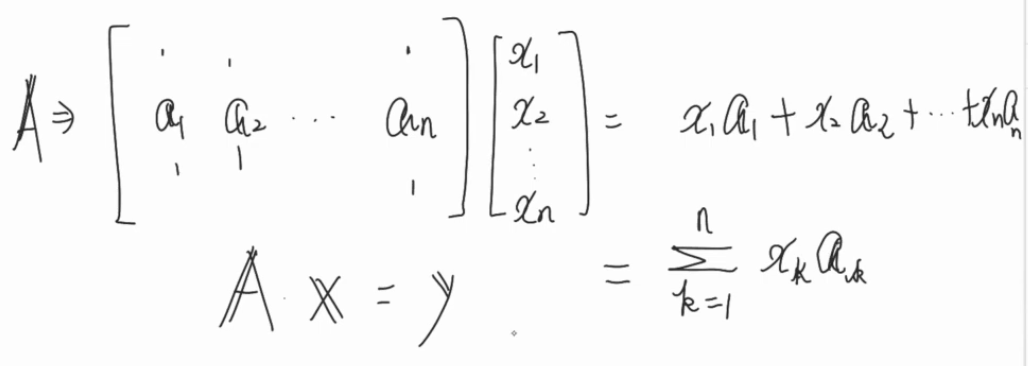 𝔸 ⇒ [ 𝕒₁ 𝕒₂ ⋯ 𝕒ₙ ] [ x₁ x₂ ⋮ xₙ ] = x₁𝕒₁ + x₂𝕒₂ + ⋯ + xₙ𝕒ₙ
𝔸 𝕩 = 𝕪 = ∑ₖ₌₁ⁿ xₖ𝕒ₖ